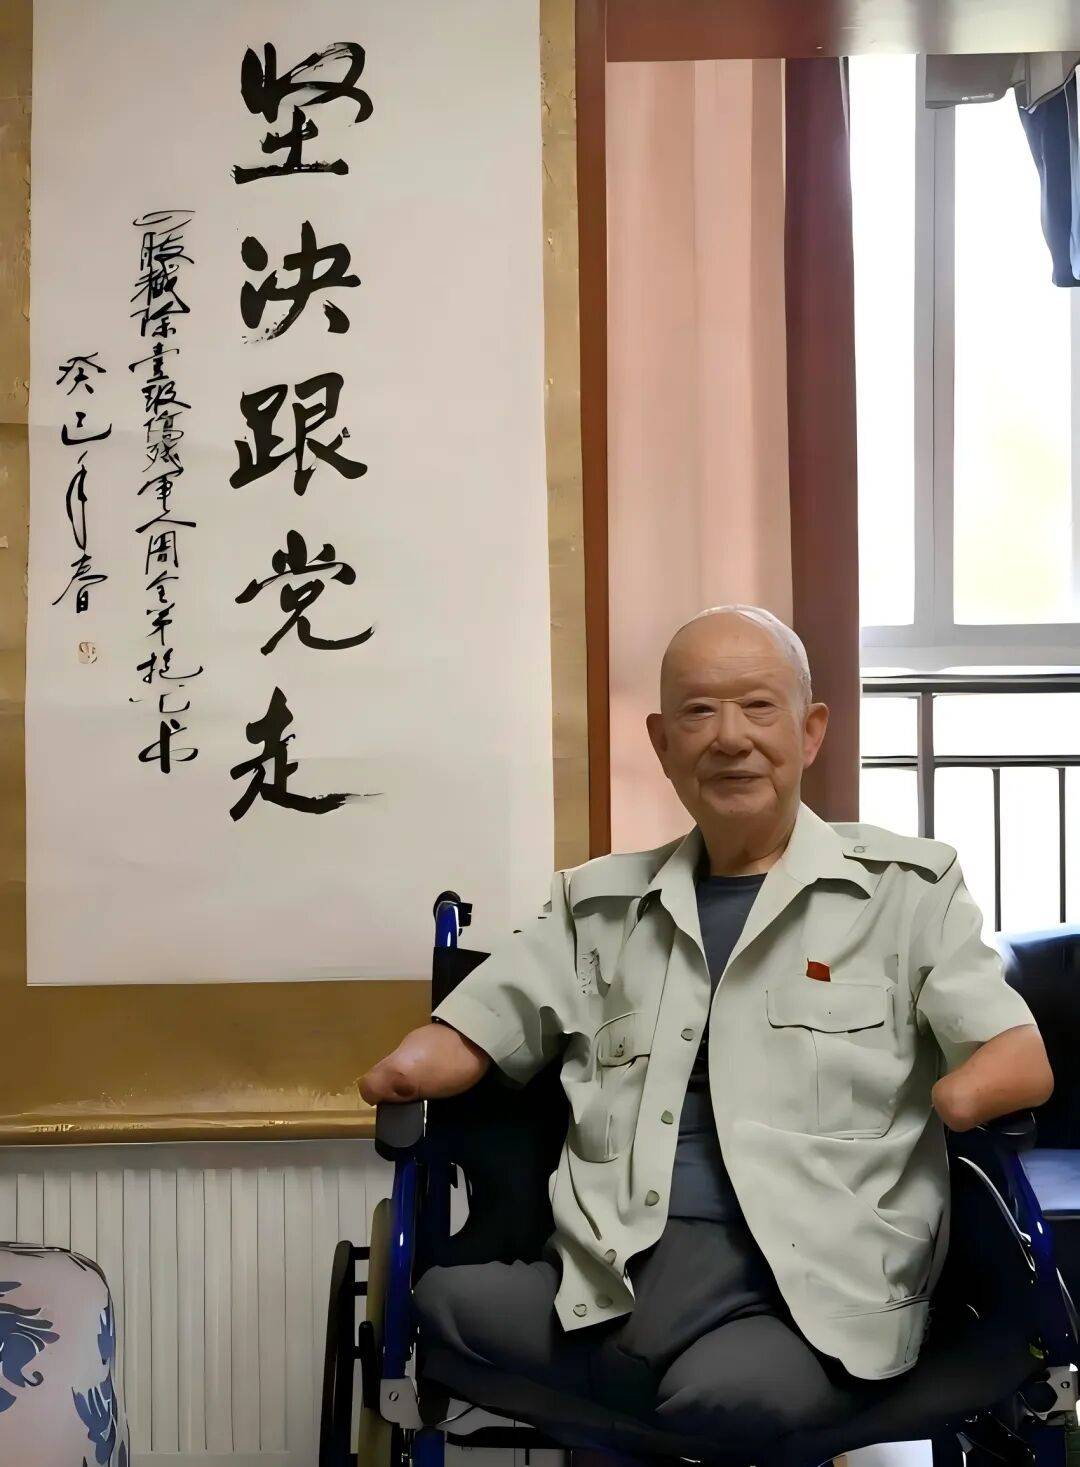 坚决跟党走
四肢截除壹级傷残軍人周全弟抱书
癸巳年春